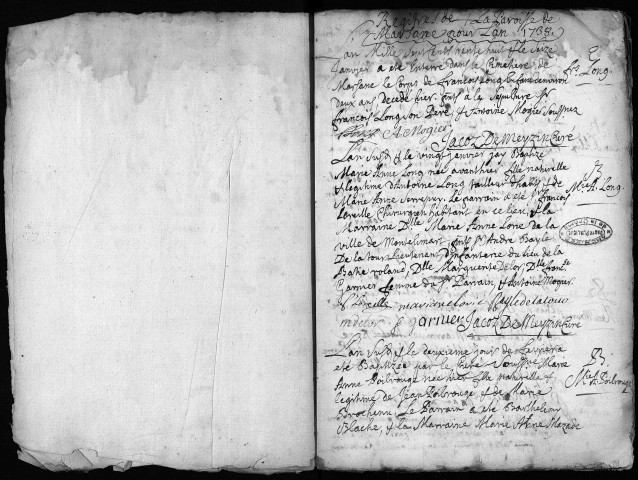 Registres de La Paroisse de
Marsane pour Lan 1738
Lan Mille Sept Cents trente huit & le Seize
Janvier a eté Enterré dans le Cimetiere de
Marsane le Corps de francois Long Enfant environ
deux ans decedé hier. Pnts à la Sepulture Sr
francois Long son Pere, & Antoine Mogier Soussignez
A Mogier
Jacoz De Meyzin Curé
fr. Long.
Lan susd. & le vingt janvier jay Baptizé
Marie Anne Long née avanthier fille naturelle
& legitime d'Antoine Long tailleur d'habits & de
Marie Anne Le parrain a eté Sr francois
Leveillé Chirurgien habitant en ce lieu, & la
Marraine Dlle Marie Anne Lorie de la
ville de Montelimart Pnts Sr André Bayle
De la tour Lieutenant d'infanterie du lieu de la
Batie roland, Dlle Marguerite Delor, Dlle
Garnier femme du Sr Parrain, & Antoine Mogier
Bayle de la tour
garnier Jacoz De Meyzin Curé
Mie A. Long.
Lan susd. & le deuxieme jour de fevrier a
eté Baptizée par le Curé Soussigné Marie
Anne Poibrouge née hier fille naturelle &
legitime de Jean Poibrouge, & de Marie
Brochenu Le Parrain a eté Barthelmi
Blache, & la Marraine Marie Anne Mazade
Mie A. Poibrouge